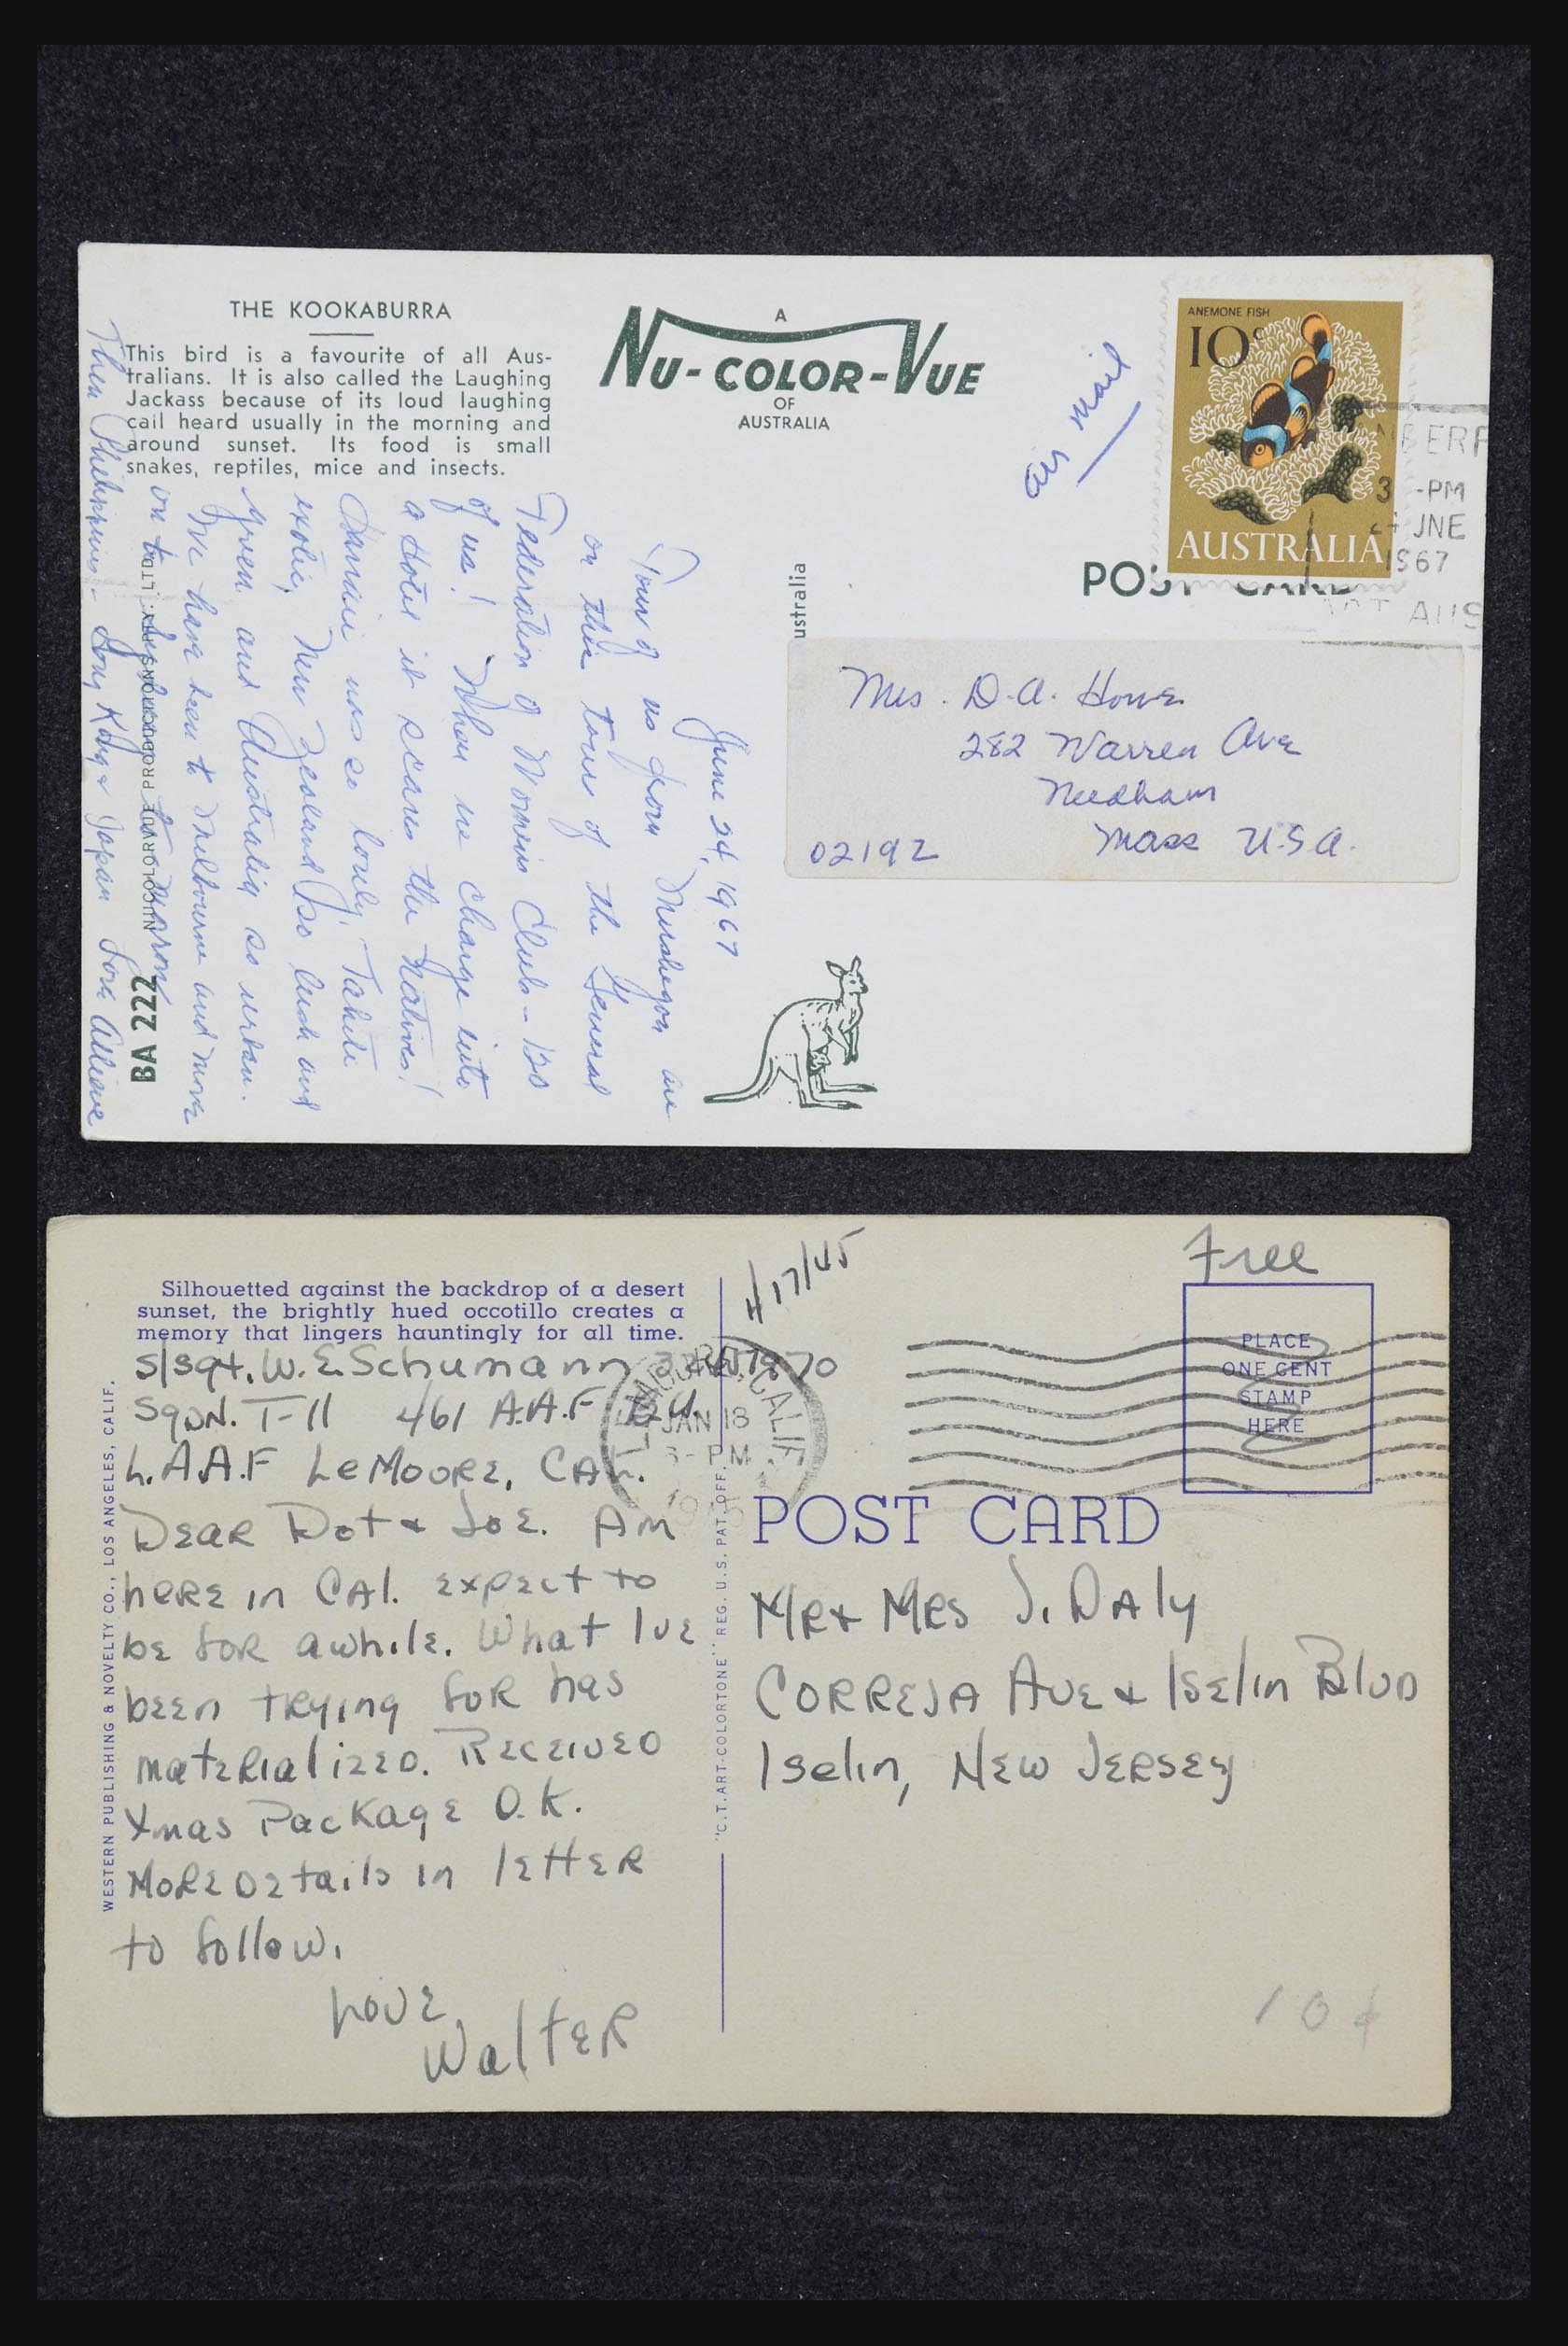 THE KOOKABURRA
This bird is a favourite of all Aus-
tralians. It is also called the Laughing
Jackass because of its loud laughing
call heard usually in the morning and
around sunset. Its food is small
snakes, reptiles, mice and insects.
A
NU-COLOR-VUE
OF
AUSTRALIA
Air Mail
ANEMONE FISH
10c
AUSTRALIA
3 -PM
JNE
1967
POST CARD
ustralia
June 24, 1967
Four of us from Muskegon are
on this tour of the General
Federation of Womens Clubs - 130
of us! When we charge into
a Hotel it scares the natives!
Hawaii was so lovely, Tahiti
exotic, New Zealand so lush and
green and Australia so urban.
We have been to Melbourne and move
on to Sydney
Then Philippines - Hong Kong & Japan Love Alliene
NUCOLORVUE PRODUCTIONS PTY. LTD.
BA 222
Mrs. D.A. Howe
282 Warren Ave
Needham
Mass U.S.A.
02192
Silhouetted against the backdrop of a desert
sunset, the brightly hued occotillo creates a
memory that lingers hauntingly for all time.
S/Sgt. W.E. Schumann
Sqdn. T-11 461 A.A.F B.U.
L.A.A.F LeMoore, Cal.
Dear Dot & Joe. Am
here in Cal. expect to
be for awhile. What Ive
been trying for has
materialized. Received
Xmas Package O.K.
More Details in letter
to follow.
Love,
Walter
WESTERN PUBLISHING & NOVELTY CO., LOS ANGELES, CALIF.
"C.T. ART-COLORTONE" REG. U.S. PAT. OFF.
1/17/45
CALIF
JAN 18
PM
1945
Free
PLACE
ONE CENT
STAMP
HERE
POST CARD
Mr & Mrs J. Daly
Correja Ave & Iselin Blvd
Iselin, New Jersey
10¢